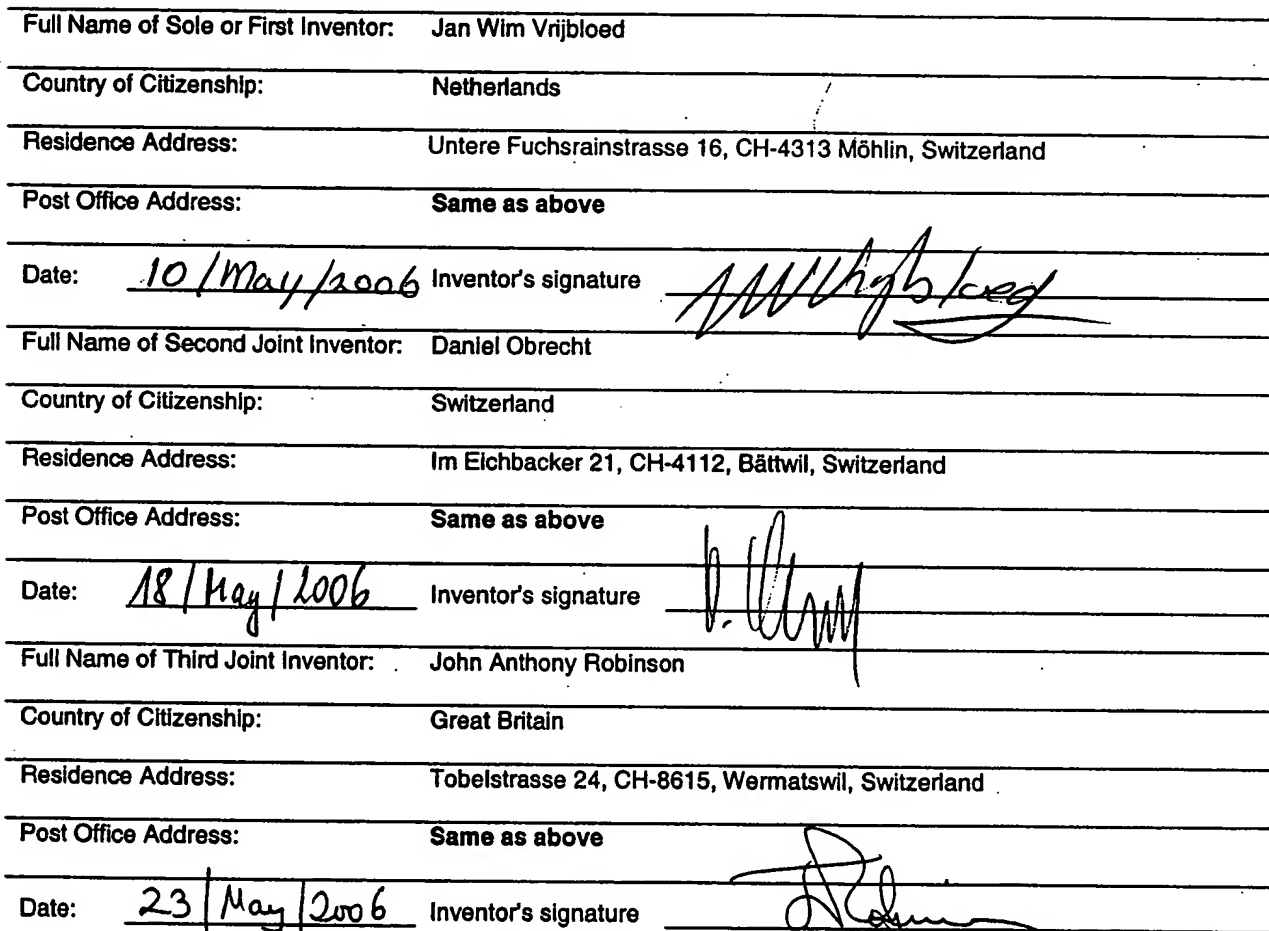 Full Name of Sole or First Inventor: Jan Wim Vrijbloed
Country of Citizenship: Netherlands
Residence Address: Untere Fuchsrainstrasse 16, CH-4313 Möhlin, Switzerland
Post Office Address: Same as above
Date: 10/May/2006 Inventor's signature JWVrijbloed
Full Name of Second Joint Inventor: Daniel Obrecht
Country of Citizenship: Switzerland
Residence Address: Im Eichbacker 21, CH-4112, Bättwil, Switzerland
Post Office Address: Same as above
Date: 18/May/2006 Inventor's signature
Full Name of Third Joint Inventor: John Anthony Robinson
Country of Citizenship: Great Britain
Residence Address: Tobelstrasse 24, CH-8615, Wermatswil, Switzerland
Post Office Address: Same as above
Date: 23/May/2006 Inventor's signature